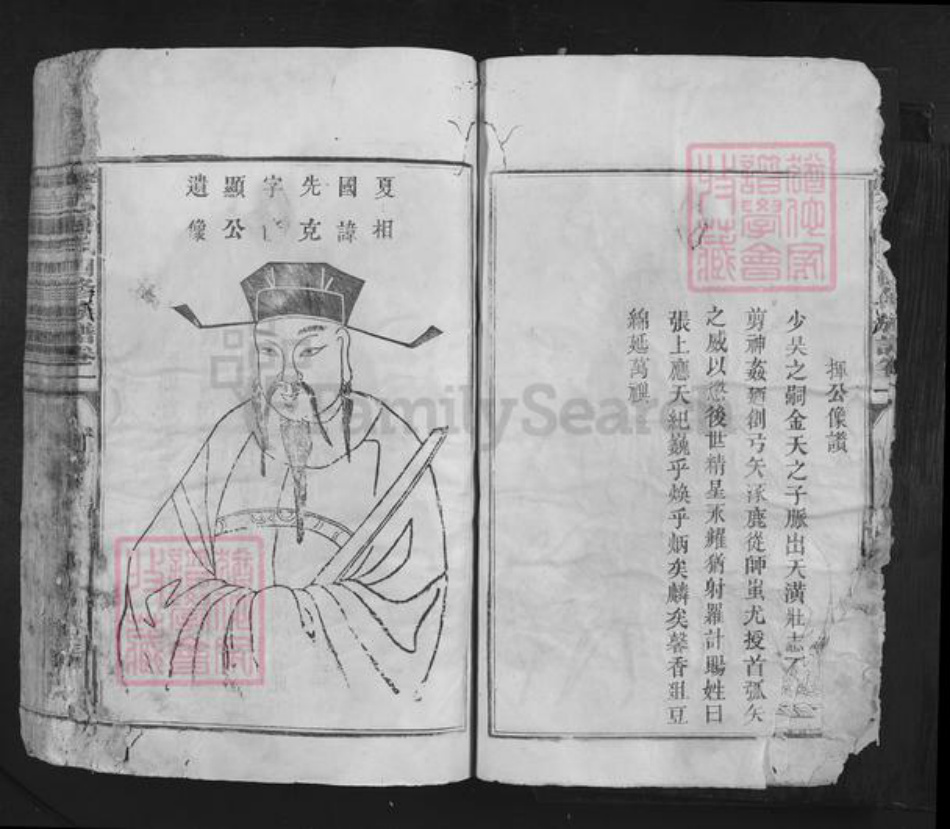 揮公像讚
少昊之嗣金天之子脈出天潢壯志
剪神姦廼創弓矢涿鹿從師蚩尤授首弧矢
之威以懲後世精星永耀猶射羅計賜姓曰
張上應天紀巍乎煥乎炳矣麟矣馨香俎豆
綿延萬禩
夏相
國諱
先克
字
顯公
遺像
譜學會
收藏
FamilySearch